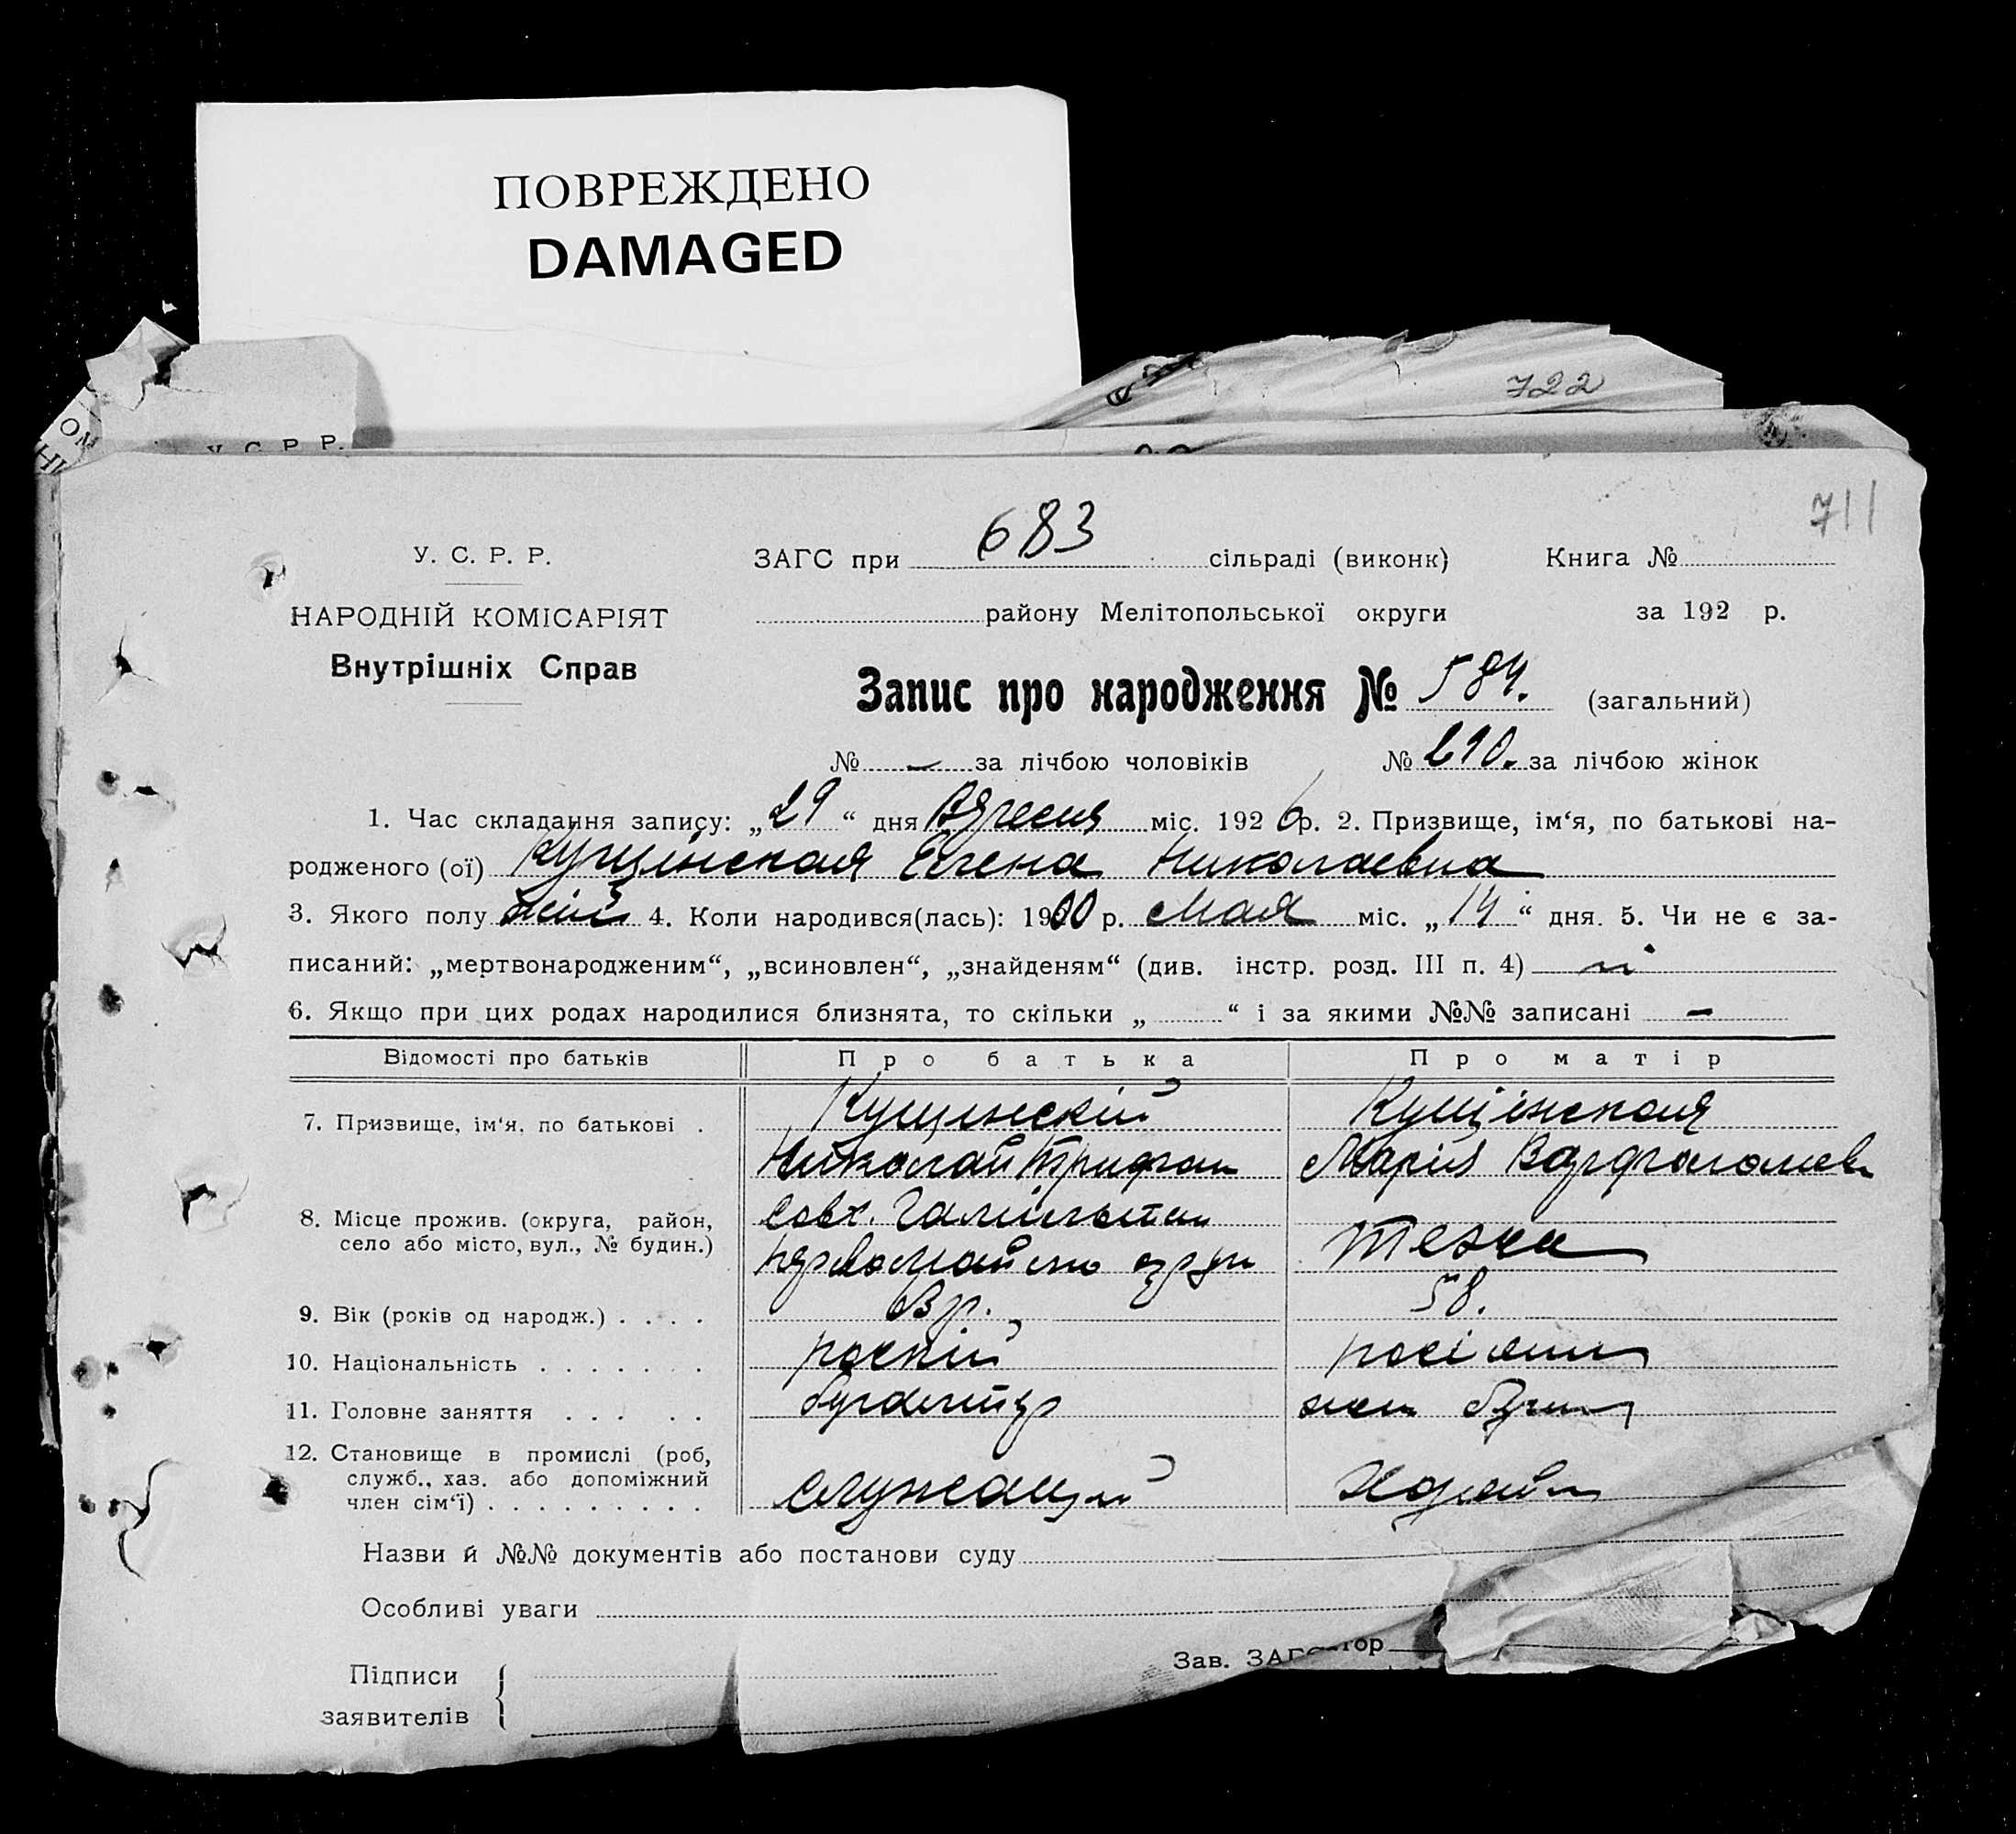 ПОВРЕЖДЕНО
DAMAGED
722
ОМ
НИ
У. С. Р. Р.
711
У. С. Р. Р.
ЗАГС при 683 сільраді (виконк) Книга №
НАРОДНІЙ КОМІСАРІЯТ
району Мелітопольської округи за 192 р.
Внутрішніх Справ
Запис про народження № 584. (загальний)
№ – за лічбою чоловіків № 290. за лічбою жінок
1. Час складання запису: „29“ дня Вересня міс. 1926 р. 2. Призвище, ім‘я, по батькові на-
родженого (ої) Кущінская Елена Николаевна
3. Якого полу жін 4. Коли народився(лась): 1900 р. Мая міс. „14“ дня. 5. Чи не є за-
писаний: „мертвонародженим“, „всиновлен“, „знайденям“ (див. інстр. розд. III п. 4) ні
6. Якщо при цих родах народилися близнята, то скільки „ “ і за якими №№ записані –
Відомості про батьків Про батька Про матір
7. Призвище, ім‘я, по батькові .
Кущинскій Кущінская
Николай Трифон Марія Варфоломев
8. Місце прожив. (округа, район,
село або місто, вул., № будин.)
Совх.
Первомайсько тежа
9. Вік (років од народж.) . . . . 58.
10. Національність . . . . . . . росіянин
11. Головне заняття . . . . . бухгалтер
12. Становище в промислі (роб,
служб., хаз. або допоміжний
член сім‘ї) . . . . . . . . . служащий
Назви й №№ документів або постанови суду
Особливі уваги
Зав. ЗАГС тор
Підписи
заявителів